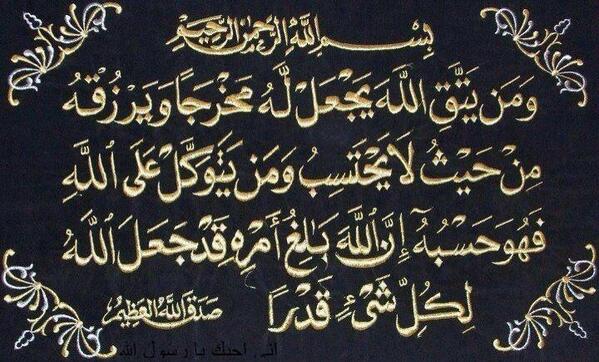 بِسْمِ اللَّهِ الرَّحْمَٰنِ الرَّحِيمِ
وَمَن يَتَّقِ اللَّهَ يَجْعَل لَّهُ مَخْرَجًا وَيَرْزُقْهُ
مِنْ حَيْثُ لَا يَحْتَسِبُ وَمَن يَتَوَكَّلْ عَلَى اللَّهِ
فَهُوَ حَسْبُهُ إِنَّ اللَّهَ بَالِغُ أَمْرِهِ قَدْ جَعَلَ اللَّهُ
لِكُلِّ شَيْءٍ قَدْرًا صَدَقَ اللَّهُ الْعَظِيمُ
انى احبك يا رسول الله